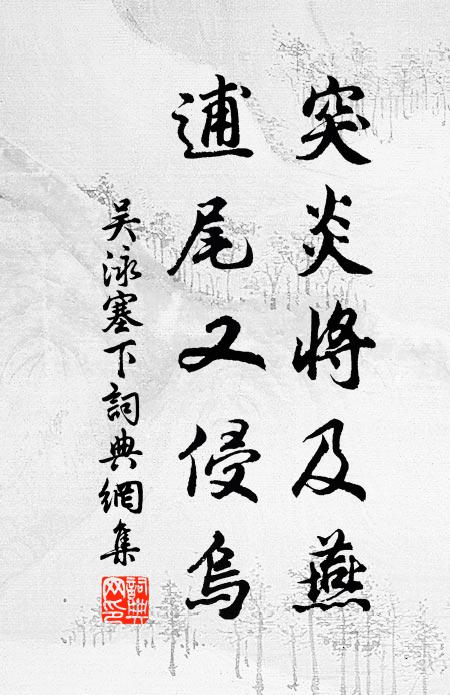 突炎將及燕
逋尾又侵烏
吴泳塞下詞典網集
詞典